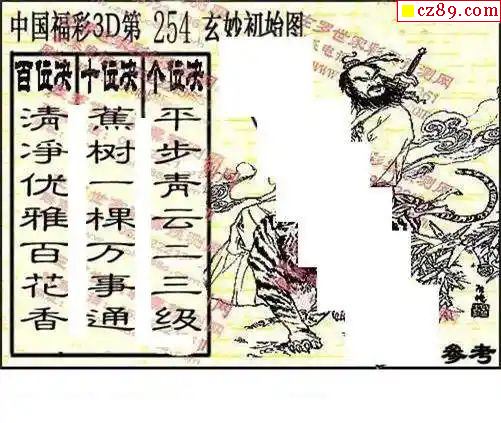 cz89.com
中国福彩3D第 254 玄妙初始图
百位决 十位决 个位决
清净优雅百花香
蕉树一棵万事通
平步青云二三级
参考